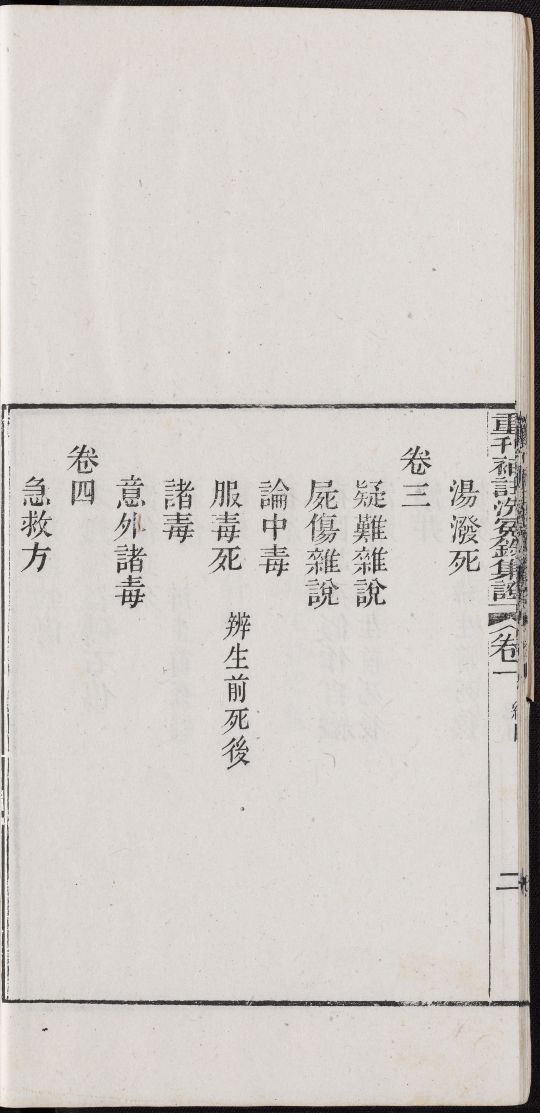 重刊補註洗冤錄集證
卷一
總目
二
湯潑死
卷三
疑難雜說
屍傷雜說
論中毒
服毒死 辨生前死後
諸毒
意外諸毒
卷四
急救方